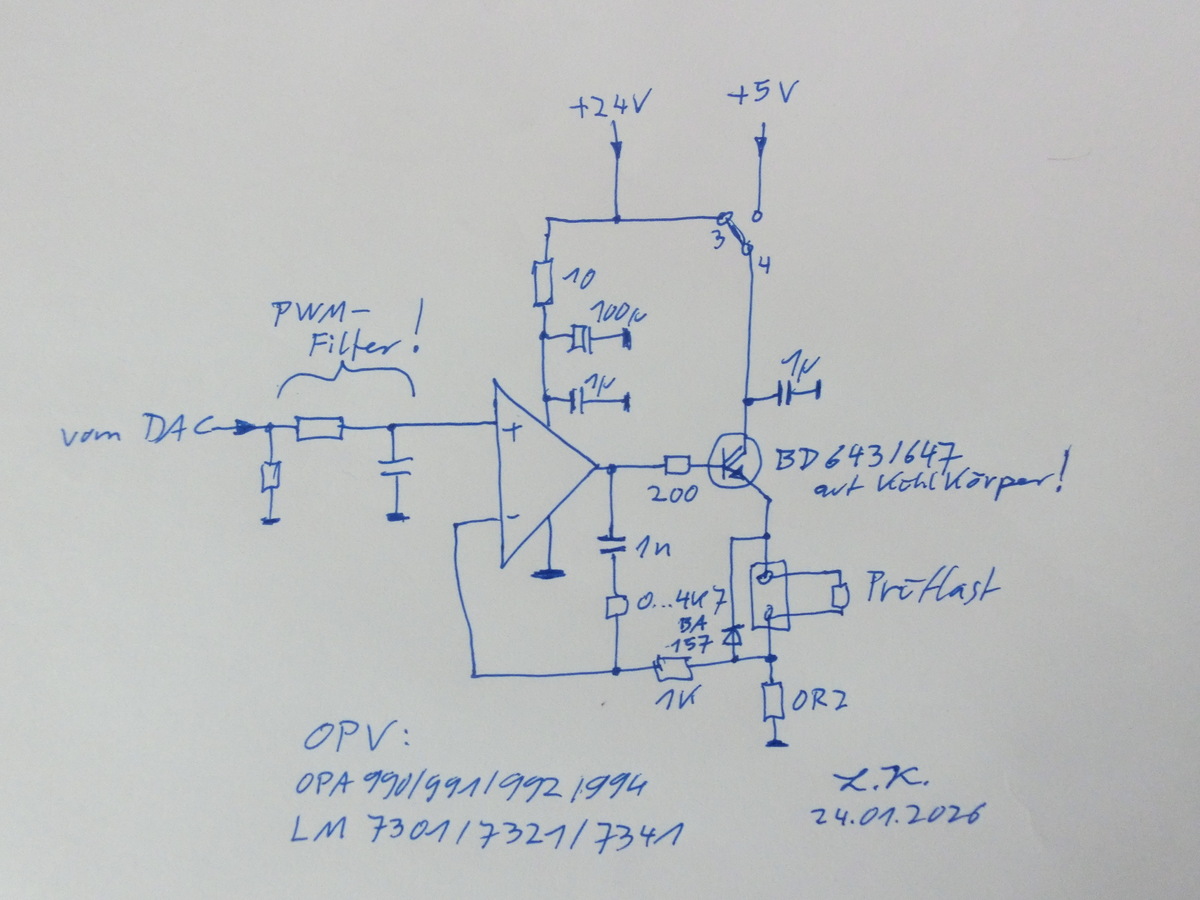 +24V
+5V
3
4
10
100µ
1µ
1µ
PWM-
Filter!
vom DAC
+
-
200
BD 643/647
auf Kühlkörper!
1n
0...4K7
BA
157
Prüflast
1K
0R2
OPV:
OPA 990/991/992/994
LM 7301/7321/7341
L.K.
24.01.2026